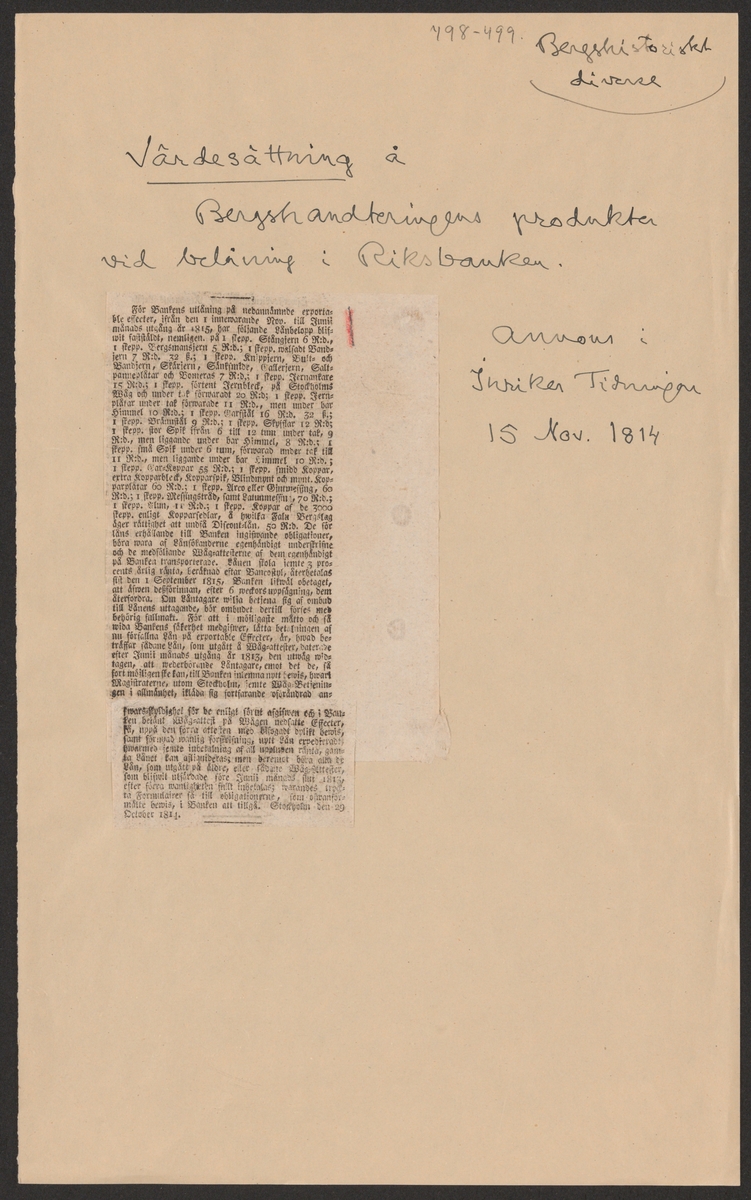 498-499.
Bergshistoriskt
diverse
Värdesättning å
Bergshandteringens produkter
vid belåning i Riksbanken.
Annons i
Inrikes Tidningar
15 Nov. 1814
För Bankens utlåning på nedannämnde exporta-
ble effecter, ifrån den 1 innewarande Nov. till Junii
månads utgång år 1815, har följande Lånbelopp blif-
wit fastställdt, nemligen. på 1 skepp. Stångjern 6 R:d.,
1 skepp. Bergsmansjern 5 R:d.; 1 skepp. walsadt Band-
jern 7 R:d. 32 ß.; 1 skepp. Knippjern, Bult- och
Bandjern, Skärjern, Sänksmide, Gallerjern, Salt-
panneplåtar och Bomeras 7 R:d.; 1 skepp. Jernankare
15 R:d.; 1 skepp. förtent Jernbleck, på Stockholms
Wåg och under tak förwaradt 20 R:d; 1 skepp. Jern-
plåtar under tak förwarade 11 R:d., men under bar
Himmel 10 R:d.; 1 skepp. Garfstål 16 R:d. 32 ß.;
1 skepp. Brännstål 9 R:d.; 1 skepp. Skyfflar 12 R:d;
1 skepp. stor Spik ifrån 6 till 12 tum under tak, 9
R:d., men liggande under bar Himmel, 8 R:d.; 1
skepp. små Spik under 6 tum, förwarad under tak till
11 R:d., men liggande under bar Himmel 10 R:d.;
1 skepp. Gar-Koppar 55 R:d.; 1 skepp. smidd Koppar,
extra Kopparbleck, Kopparspik, Blindmynt och mynt. Kop-
parplåtar 60 R:d.; 1 skepp. Arco eller Gjutmessing, 60
R:d.; 1 skepp. Messingstråd, samt Latunmessing, 70 R:d.;
1 skepp. Alun, 11 R:d.; 1 skepp. Koppar af de 3000
skepp. enligt Kopparsedlar, å hwilka Falu Bergslag
äger rättighet att undfå Discont-lån, 50 R:d. De för
låns erhållande till Banken ingifwande obligationer,
böra wara af Lånsökanderne egenhändigt underskrifne
och de medföljande Wåg-attesterne af dem egenhändigt
på Banken transporterade. Lånen skola jemte 3 pro-
cents årlig ränta, beräknad efter Bancostyl, återbetalas
sist den 1 September 1815, Banken likwäl obetaget,
att äfwen desförinnan, efter 6 weckors uppsägning, dem
återfordra. Om Låntagare wilja betjena sig af ombud
till Lånens uttagande, bör ombudet dertill förses med
behörig fullmakt. För att i möjligaste måtto och så
wida Bankens säkerhet medgifwer, lätta betalningen af
nu förfallna Lån på exportable Effecter, är, hwad be-
träffar sådane Lån, som utgått å Wåg-attester, daterade
efter Junii månads utgång år 1813, den utwäg wid-
tagen, att wederbörande Låntagare, emot det de, så
fort möjligen ske kan, till Banken inlemna nytt bewis, hwari
Magistraterne, utom Stockholm, jemte Wåg-Betjenin-
gen i allmänhet, ikläda sig fortfarande oförändrad an-
swars-skyldighet för de enligt förut afgifwen och i Ban-
ken belånt Wåg-attest på Wågen nedsatte Effecter,
få, uppå den förra attesten med bifogadt dylikt bewis,
samt förnyad wanlig förskrifning, nytt Lån expedieradt,
hwarmed jemte inbetalning af all upplupen ränta, gam-
la Lånet kan afliqvideras; men deremot böra alla de
Lån, som utgått på äldre, eller sådane Wåg-Attester,
som blifwit utfärdade före Junii månads slut 1813,
efter förra wanligheten fullt inbetalas; warandes tryck-
ta Formulairer så till obligationerne, som ofwanför-
mälte bewis, i Banken att tillgå. Stockholm den 29
October 1814.